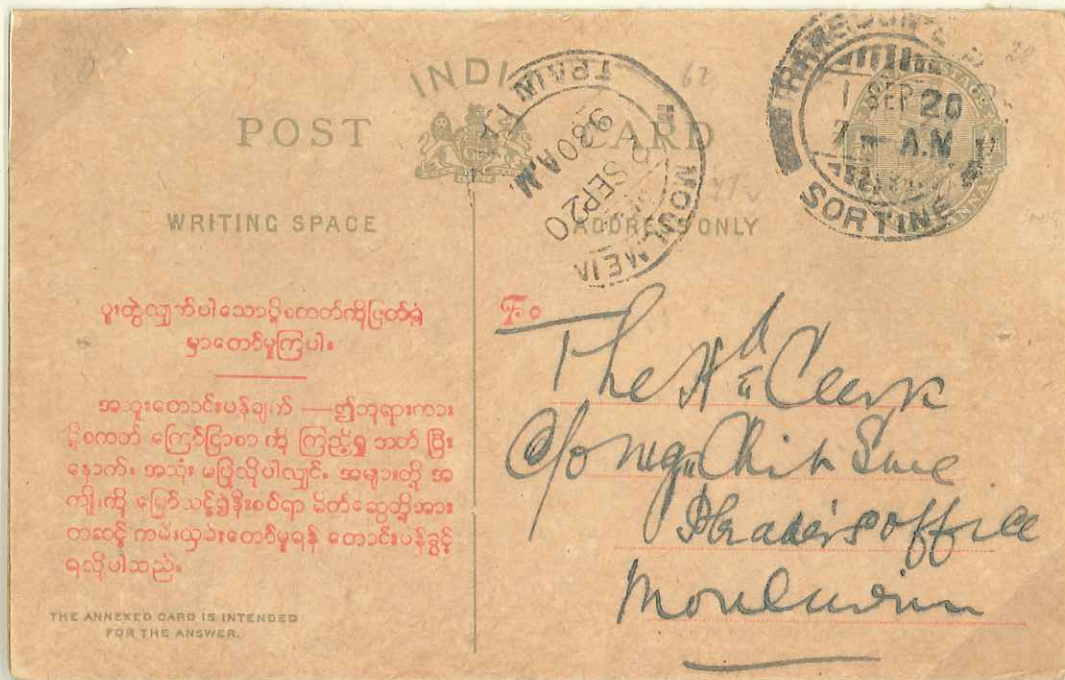 INDIA
POST CARD
WRITING SPACE
ADDRESS ONLY
TRAIN
MOULMEIN
9.30 A.M.
SEP 20
1 SEP 20
7 - A.M
SORTING
ပူးတွဲလျှက်ပါသောပို့စကတ်ကိုဖြတ်ရွှဲ
မှာတော်မူကြပါ။
အထူးတောင်းပန်ချက် — ဤဘုရားကား
ပို့စကတ် ကြော်ငြာစာ ကို ကြည့်ရှု ဘတ် ပြီး
နောက်၊ အသုံး မပြုလိုပါလျှင်၊ အများတို့ အ
ကျိုးကို မြှော်သင့်၍နီးစပ်ရာ မိတ်ဆွေတို့အား
တဆင့် ကမ်းလှမ်းတော်မူရန် တောင်းပန်ခွင့်
ရလိုပါသည်။
THE ANNEXED CARD IS INTENDED
FOR THE ANSWER.
To
The Hd Clerk
C/o Mg Chit Swe
Pleader's office
Moulmein